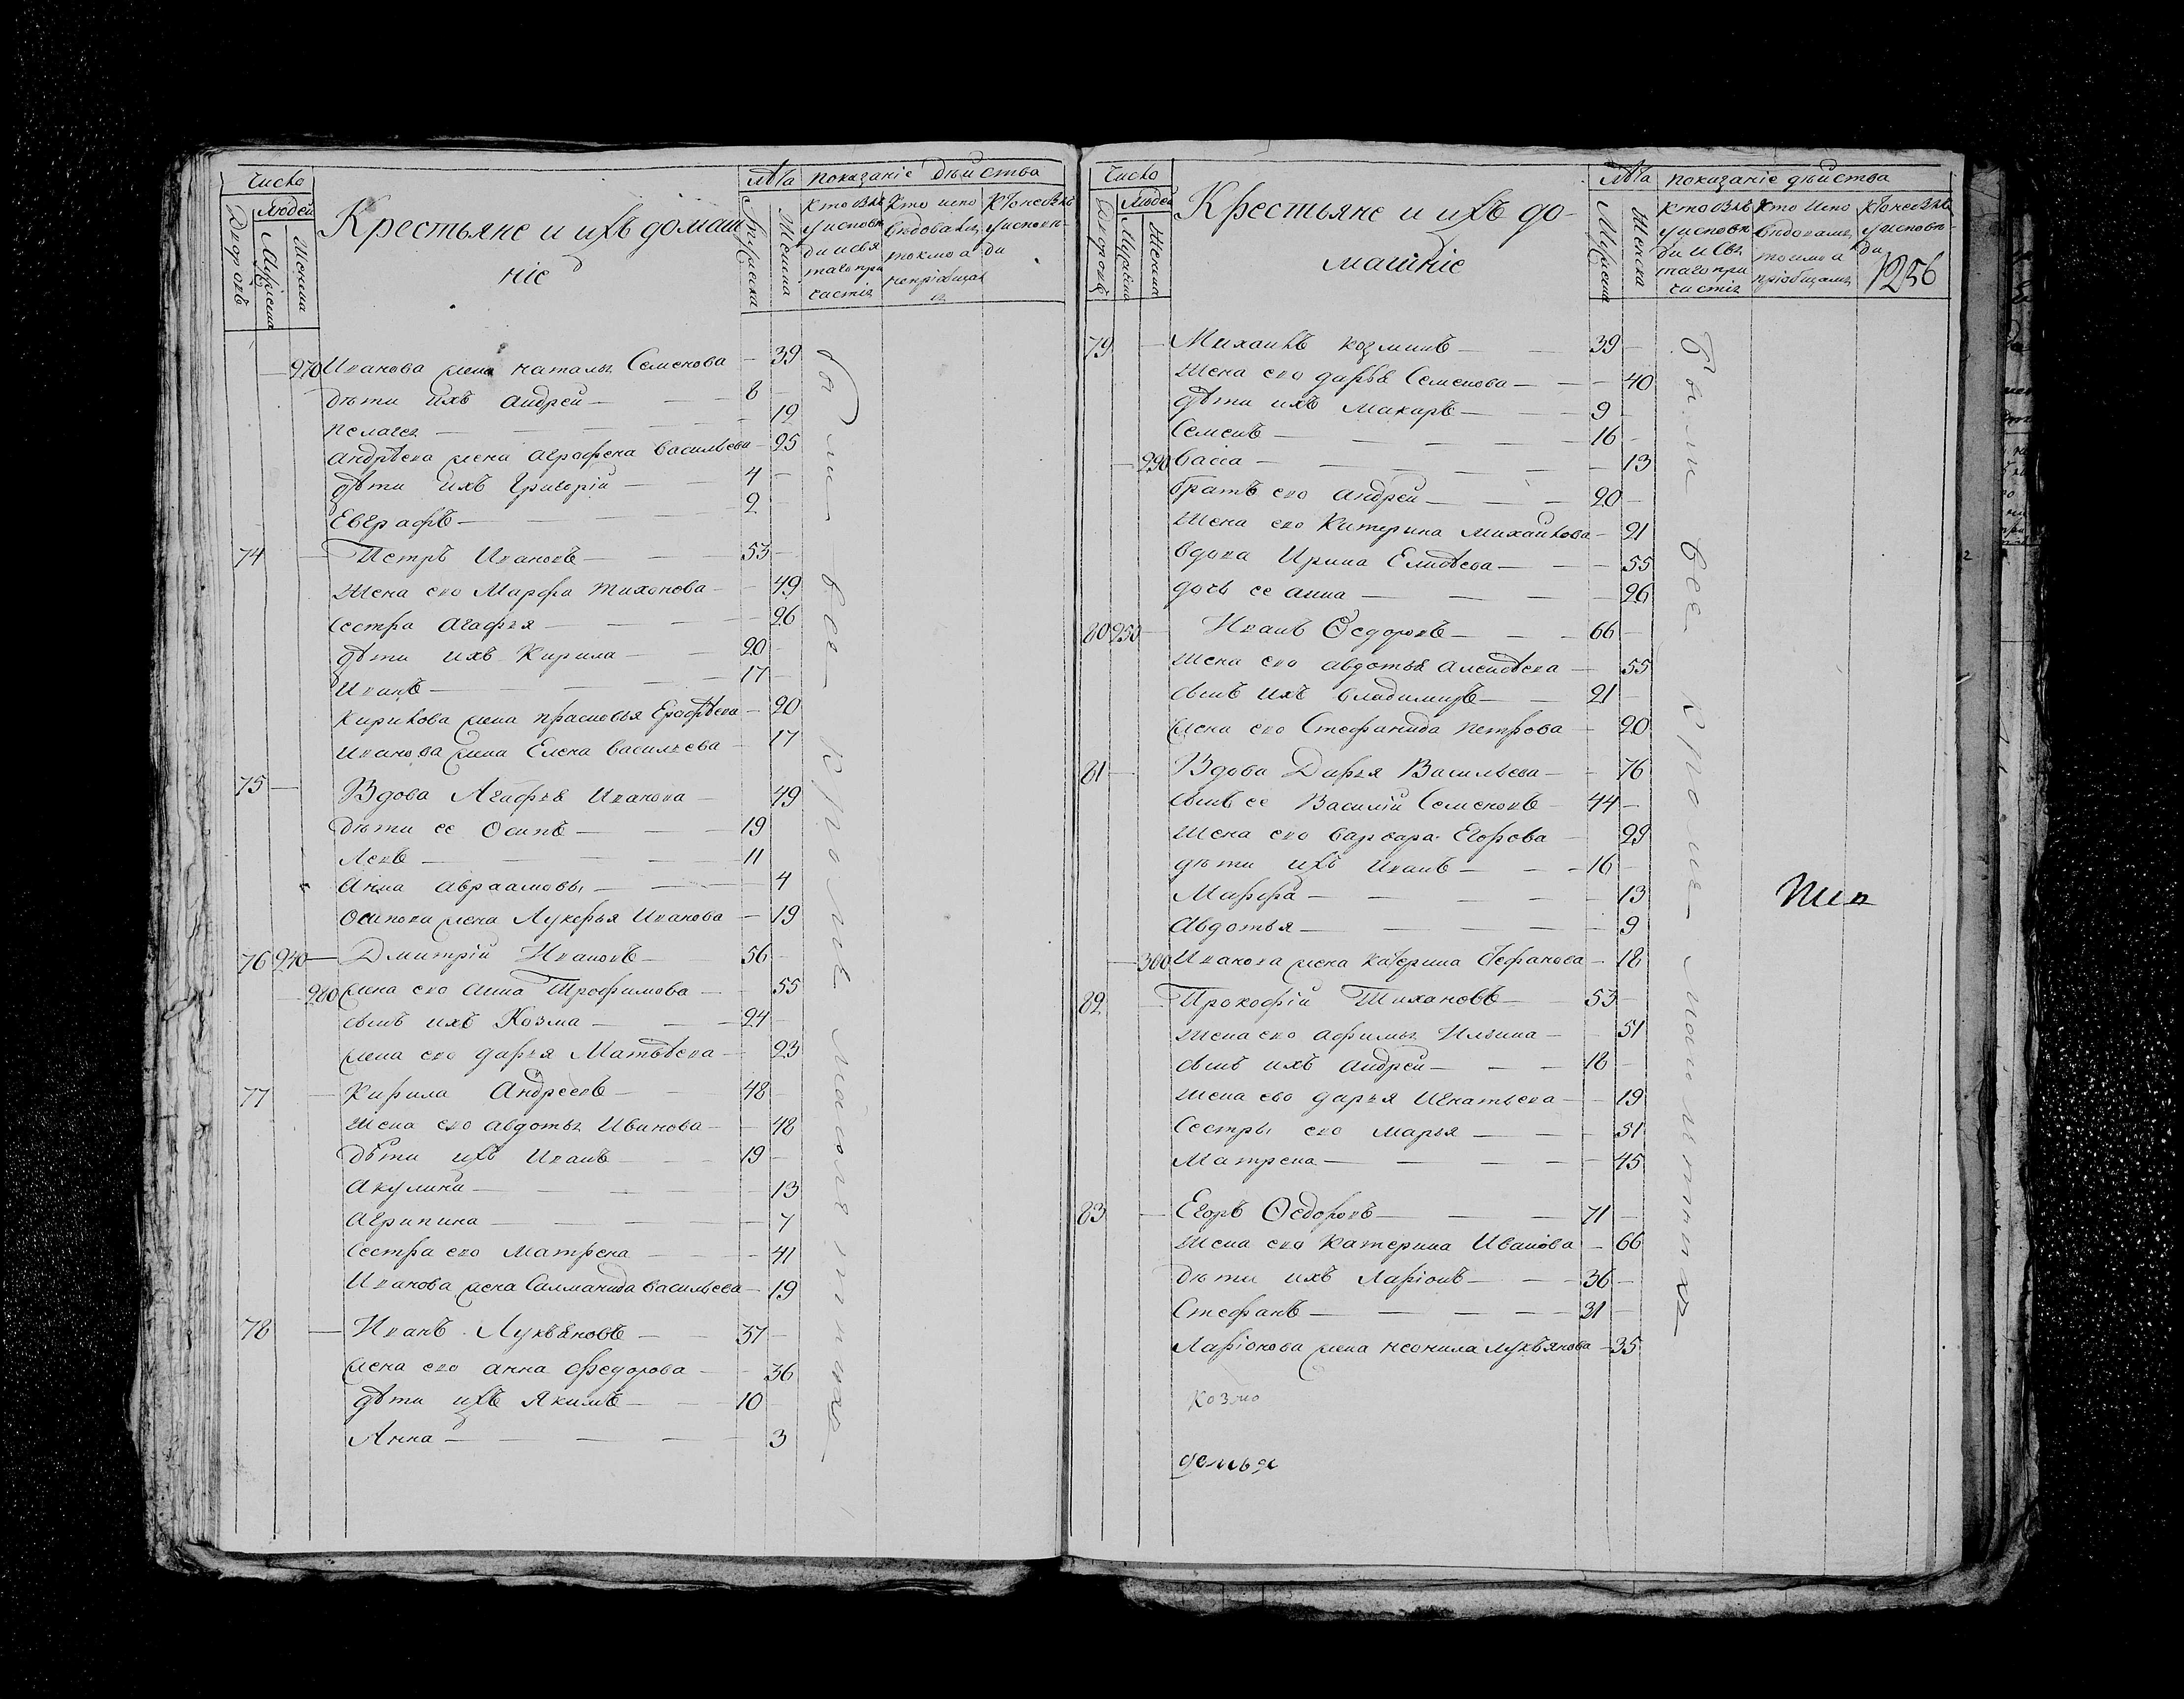 число
Людей
Дворовъ
Мужеска
Женска
Крестьяне и ихъ домаш
ніе
Лѣта
Мужеска
Женска
показаніе дѣйства
кто былъ
у исповѣ
ди и свя
таго при
частія
кто испо
вѣдовался
токмо а
непріобщал
ся
кто не былъ
у исповѣ-
ди
270 Иванова жена наталья Семенова — 39
дѣти ихъ андрей — 8
пелагея — 12
андрѣева жена аграфена васильева — 25
дѣти ихъ григорій — 4
Евграфъ — 2
74 — Петръ Ивановъ — 53
Жена его Марфа Тихонова — 49
сестра агафья — 26
дѣти ихъ Кирила — 20
Иванъ — 17
Кирилова жена прасковья Ерофѣева — 20
Иванова жена Елена васильева — 17
75 — Вдова Агафья Иванова — 49
дѣти ее Осипъ — 19
Левъ — 11
Анна авраамовы — 4
Осипова жена Лукерья Иванова — 19
76 240 — Дмитрій Ивановъ — 56
280 жена его анна Трофимова — 55
сынъ ихъ Козма — 24
жена его дарья Матвѣева — 23
77 — Кирила Андреевъ — 48
Жена его авдотья Иванова — 48
дѣти ихъ Иванъ — 19
Акулина — 13
Агрипина — 7
Сестра его Матрена — 41
Иванова жена Саломанида васильева — 19
78 — Иванъ Лукьяновъ — 37
жена его анна федорова — 36
дѣти ихъ Якимъ — 10
Анна — 3
были все кроме малолетнихъ
число
Людей
Дворовъ
Мужеска
Женска
Крестьяне и ихъ до-
машніе
Лѣта
Мужеска
Женска
показаніе дѣйства
кто былъ
у исповѣ
ди и свя
таго при
частія
кто испо
вѣдовался
токмо а
пріобщался
кто не былъ
у исповѣ-
ди
1256
79 — Михаилъ козминъ — 39
Жена его дарья Семенова — 40
дѣти ихъ Макаръ — 9
Семенъ — 16
290 васса — 13
братъ его андрей — 20
Жена его Катерина Михайлова — 21
вдова Ирина Елисѣева — 55
дочь ее анна — 26
80 250 — Иванъ Ѳедоровъ — 66
Жена его авдотья алексѣева — 55
сынъ ихъ владимиръ — 21
жена его Стефанида петрова — 20
81 — Вдова Дарья Васильева — 76
сынъ ее Василій Семеновъ — 44
Жена его варвара Егорева — 29
дѣти ихъ Иванъ — 16
Марфа — 13
Авдотья — 9
300 Иванова жена катерина Стефанова — 18
82 — Прокофій Тихановъ — 53
Жена его афимья Ильина — 51
сынъ ихъ андрей — 18
Жена его дарья Игнатьева — 19
Сестры его Марья — 51
Матрена — 45
83 — Егоръ Ѳедоровъ — 71
Жена его катерина Иванова — 66
дѣти ихъ Ларіонъ — 36
Стефанъ — 31
Ларіонова жена неонила Лукьянова — 35
Козмо
были все кроме малолетнихъ